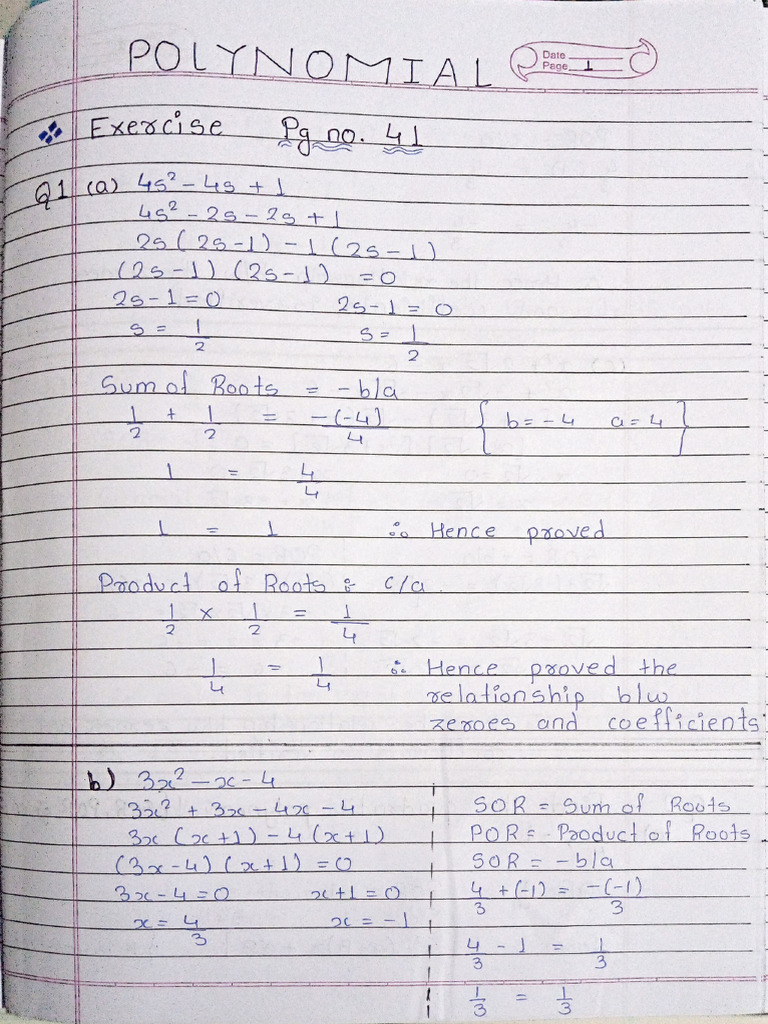 POLYNOMIAL
Date
Page 1
Exercise Pg no. 41
Q1 (a) 4s² - 4s + 1
4s² - 2s - 2s + 1
2s (2s-1) - 1 (2s-1)
(2s-1) (2s-1) = 0
2s-1 = 0 2s-1 = 0
s = 1/2 s = 1/2
Sum of Roots = -b/a
1/2 + 1/2 = -(-4)/4 { b = -4 a = 4 }
1 = 4/4
1 = 1 ∴ Hence proved
Product of Roots : c/a
1/2 × 1/2 = 1/4
1/4 = 1/4 ∴ Hence proved the
relationship b/w
zeroes and coefficients
b) 3x² - x - 4
3x² + 3x - 4x - 4
3x (x+1) - 4 (x+1)
(3x-4) (x+1) = 0
3x-4 = 0 x+1 = 0
x = 4/3 x = -1
SOR = Sum of Roots
POR = Product of Roots
SOR = -b/a
4/3 + (-1) = -(-1)/3
4/3 - 1 = 1/3
1/3 = 1/3